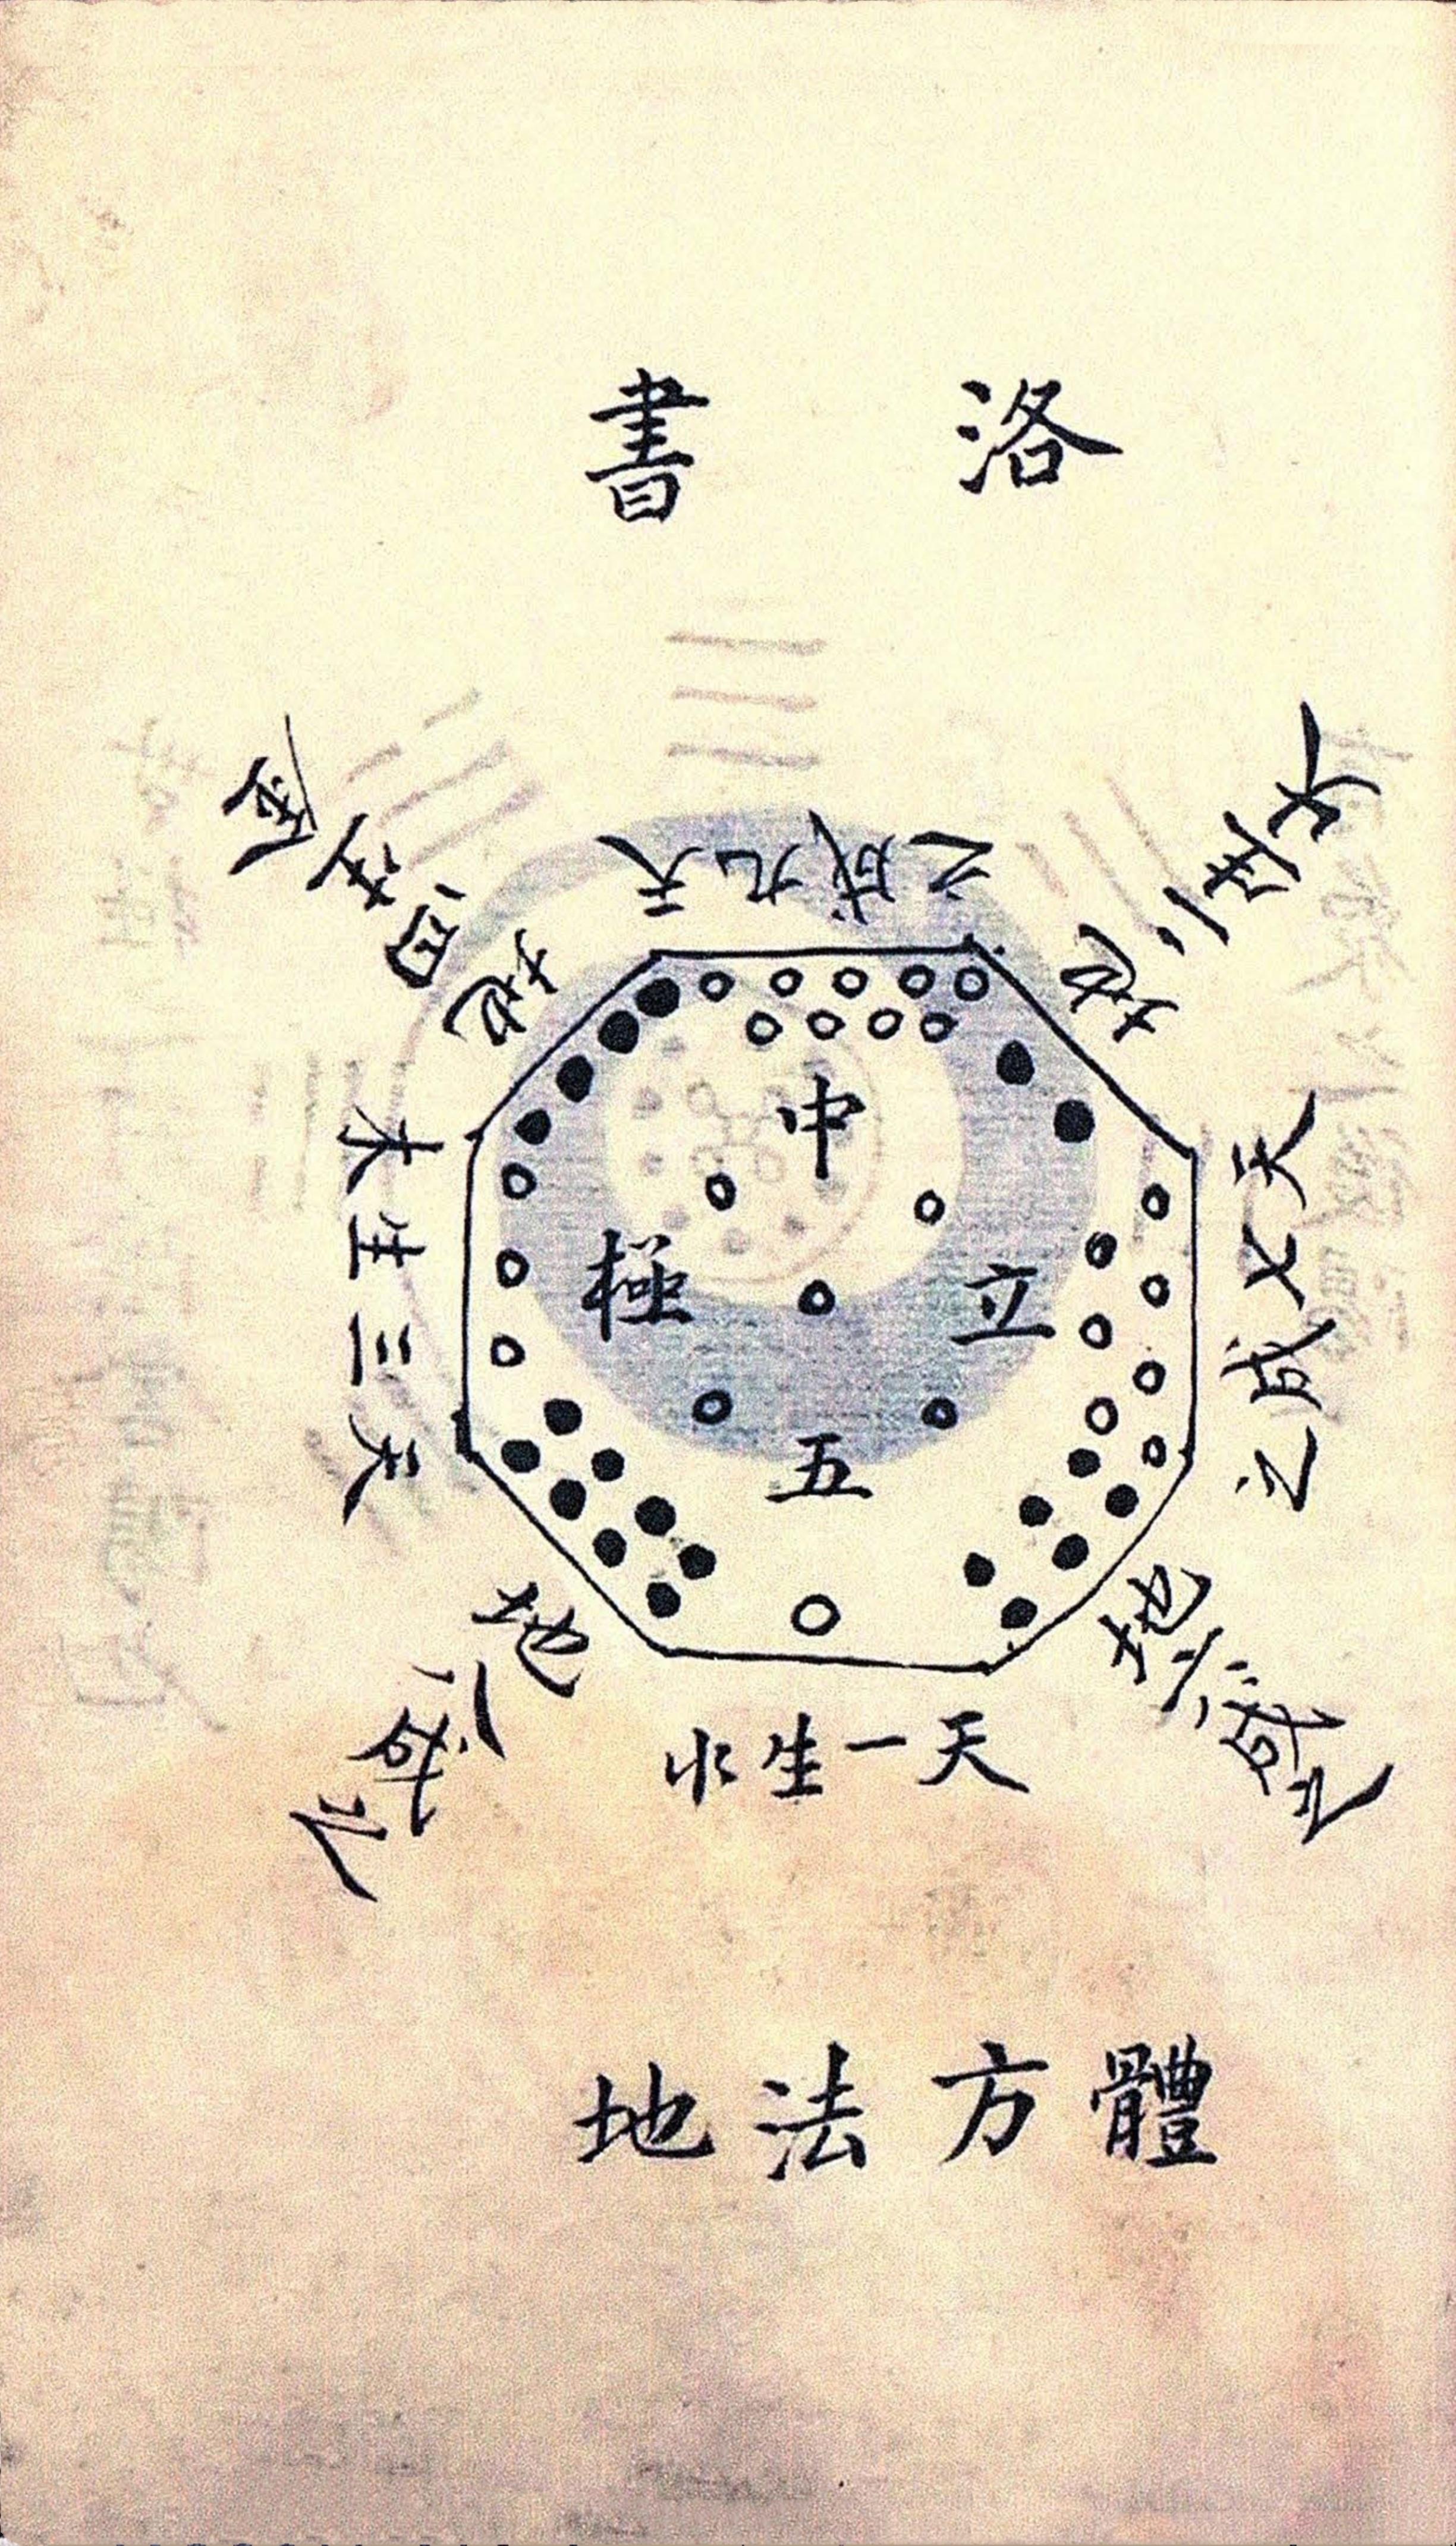 洛書
天九成之
地二生火
天七成之
地六成之
天一生水
地八成之
天三生木
地四生金
中立五極
體方法地